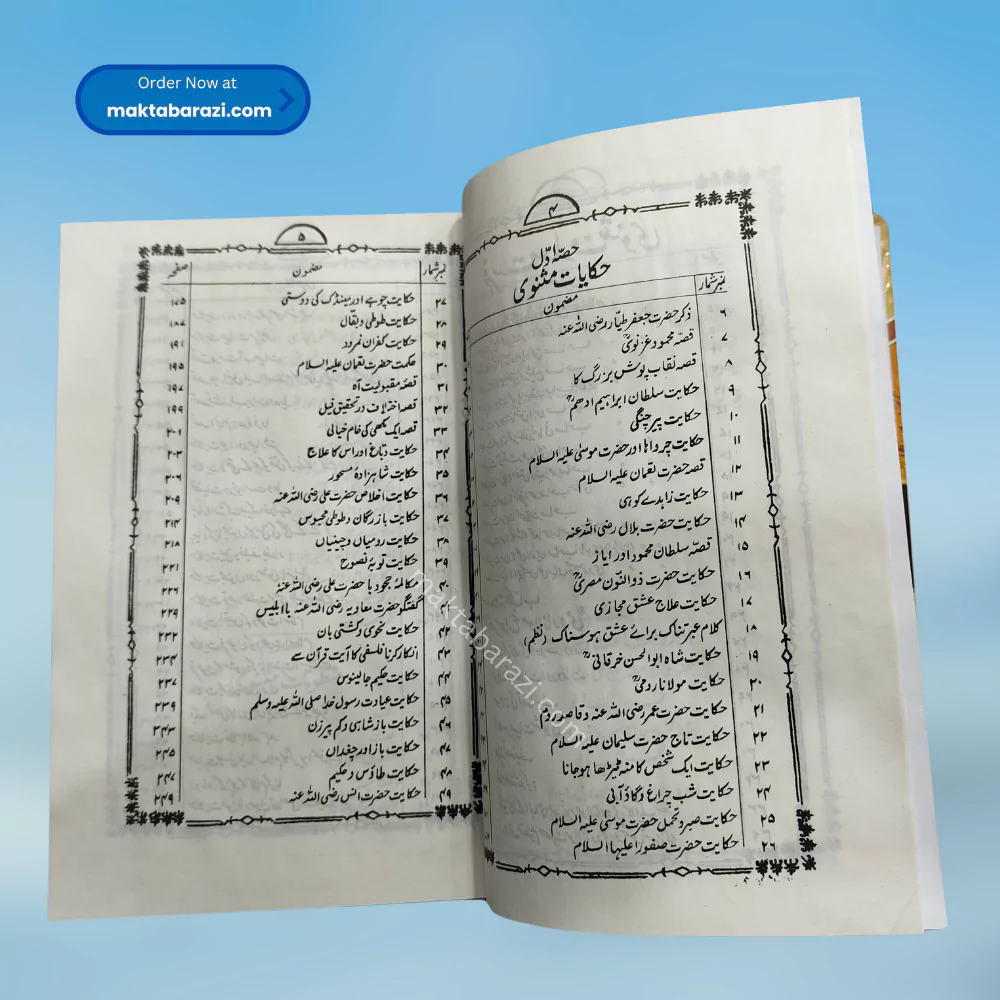 Order Now at
maktabarazi.com
۴
حصہ اوّل
حکایات مثنوی
نمبر شمار مضمون
۶ ذکر حضرت جعفر طیار رضی اللہ عنہ
۷ قصہ محمود غزنویؒ
۸ قصہ نقاب پوش بزرگ کا
۹ حکایت سلطان ابراہیم ادھمؒ
۱۰ حکایت پیر چنگی
۱۱ حکایت چرواہا اور حضرت موسیٰ علیہ السلام
۱۲ قصہ حضرت لقمان علیہ السلام
۱۳ حکایت زاہدے کوہی
۱۴ حکایت حضرت بلال رضی اللہ عنہ
۱۵ قصہ سلطان محمود اور ایاز
۱۶ حکایت حضرت ذوالنون مصریؒ
۱۷ حکایت علاج عشق مجازی
۱۸ کلام عبرتناک برائے عشق ہوسناک (نظم)
۱۹ حکایت شاہ ابوالحسن خرقانیؒ
۲۰ حکایت مولانا رومیؒ
۲۱ حکایت حضرت عمر رضی اللہ عنہ و قاصد روم
۲۲ حکایت تاج حضرت سلیمان علیہ السلام
۲۳ حکایت ایک شخص کا منہ ٹیڑھا ہو جانا
۲۴ حکایت شب چراغ و گاؤ آبی
۲۵ حکایت صبر و تحمل حضرت موسیٰ علیہ السلام
۲۶ حکایت حضرت صفورا علیہا السلام
۵
نمبر شمار مضمون صفحہ
۲۷ حکایت چوہے اور مینڈک کی دوستی ۱۷۵
۲۸ حکایت طوطی و بقّال ۱۸۷
۲۹ حکایت کفران نمرود ۱۹۱
۳۰ حکمت حضرت لقمان علیہ السلام ۱۹۵
۳۱ قصۂ مقبولیت آہ ۱۹۷
۳۲ قصہ اختلاف در تحقیق فیل ۱۹۹
۳۳ قصہ ایک مکھی کی خام خیالی ۲۰۱
۳۴ حکایت دباغ اور اس کا علاج ۲۰۳
۳۵ حکایت شاہزادۂ مسحور ۲۰۶
۳۶ حکایت اخلاص حضرت علی رضی اللہ عنہ ۲۰۹
۳۷ حکایت بازرگان و طوطی محبوس ۲۱۴
۳۸ حکایت رومیاں و چینیاں ۲۱۸
۳۹ حکایت توبۂ نصوح ۲۲۱
۴۰ مکالمۂ جحود با حضرت علی رضی اللہ عنہ ۲۲۶
۴۱ گفتگو حضرت معاویہ رضی اللہ عنہ با ابلیس ۲۲۹
۴۲ حکایت نحوی و کشتی بان ۲۳۲
۴۳ انکار کرنا فلسفی کا آیت قرآن سے ۲۳۴
۴۴ حکایت حکیم جالینوس ۲۳۷
۴۵ حکایت عیادت رسول خدا صلی اللہ علیہ وسلم ۲۳۹
۴۶ حکایت باز شاہی و کم پیرزن ۲۴۳
۴۷ حکایت باز اور چغداں ۲۴۵
۴۸ حکایت طاؤس و حکیم ۲۴۷
۴۹ حکایت حضرت انس رضی اللہ عنہ ۲۴۹
maktabarazi.com